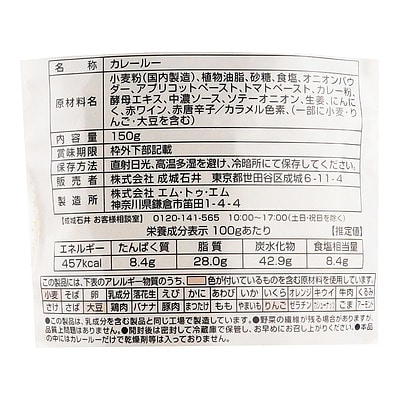 名称 カレールー
原材料名 小麦粉(国内製造)、植物油脂、砂糖、食塩、オニオンパウ
ダー、アプリコットペースト、トマトペースト、カレー粉、
酵母エキス、中濃ソース、ソテーオニオン、生姜、にんに
く、赤ワイン、赤唐辛子/カラメル色素、(一部に小麦・り
んご・大豆を含む)
内容量 150g
賞味期限 枠外下部記載
保存方法 直射日光、高温多湿を避け、冷暗所にて保存してください。
販売者 株式会社 成城石井 東京都世田谷区成城6-11-4
製造所 株式会社 エム・トゥ・エム
神奈川県鎌倉市笛田1-4-4
【成城石井 お客様相談室】 0120-141-565 10:00〜17:00(土・日・祝日を除く)
栄養成分表示 100gあたり [推定値]
エネルギー たんぱく質 脂質 炭水化物 食塩相当量
457kcal 8.4g 28.0g 42.9g 8.4g
この製品には、下表のアレルギー物質のうち、 色が付いているものを含む原材料を使用しています。
小麦 そば 卵 乳成分 落花生 えび かに あわび いか いくら オレンジ キウイ 牛肉 くるみ
さけ さば 大豆 鶏肉 バナナ 豚肉 まつたけ もも やまいも りんご ゼラチン カシューナッツ ごま アーモンド
●この製品は、乳成分を含む製品と同じ工場で製造しています。●野菜の繊維が残る場合がありますが、
品質上問題はありません。●開封後は密封して冷蔵庫で保管し、お早めにお召し上がりください。●本品の
中にはカレールーだけで乾燥剤等は入っておりません。